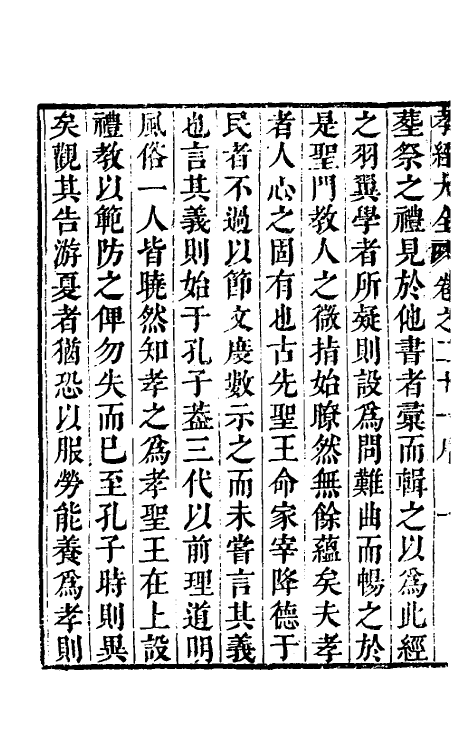 孝經大全 卷之二十一序 一
塟祭之禮見於他書者彙而輯之以爲此經
之羽翼學者所疑則設爲問難曲而暢之於
是聖門教人之微指始瞭然無餘蘊矣夫孝
者人心之固有也古先聖王命家宰降德于
民者不過以節文度數示之而未嘗言其義
也言其義則始于孔子葢三代以前理道明
風俗一人皆曉然知孝之爲孝聖王在上設
禮教以範防之俾勿失而已至孔子時則異
矣觀其告游夏者猶恐以服勞能養爲孝則